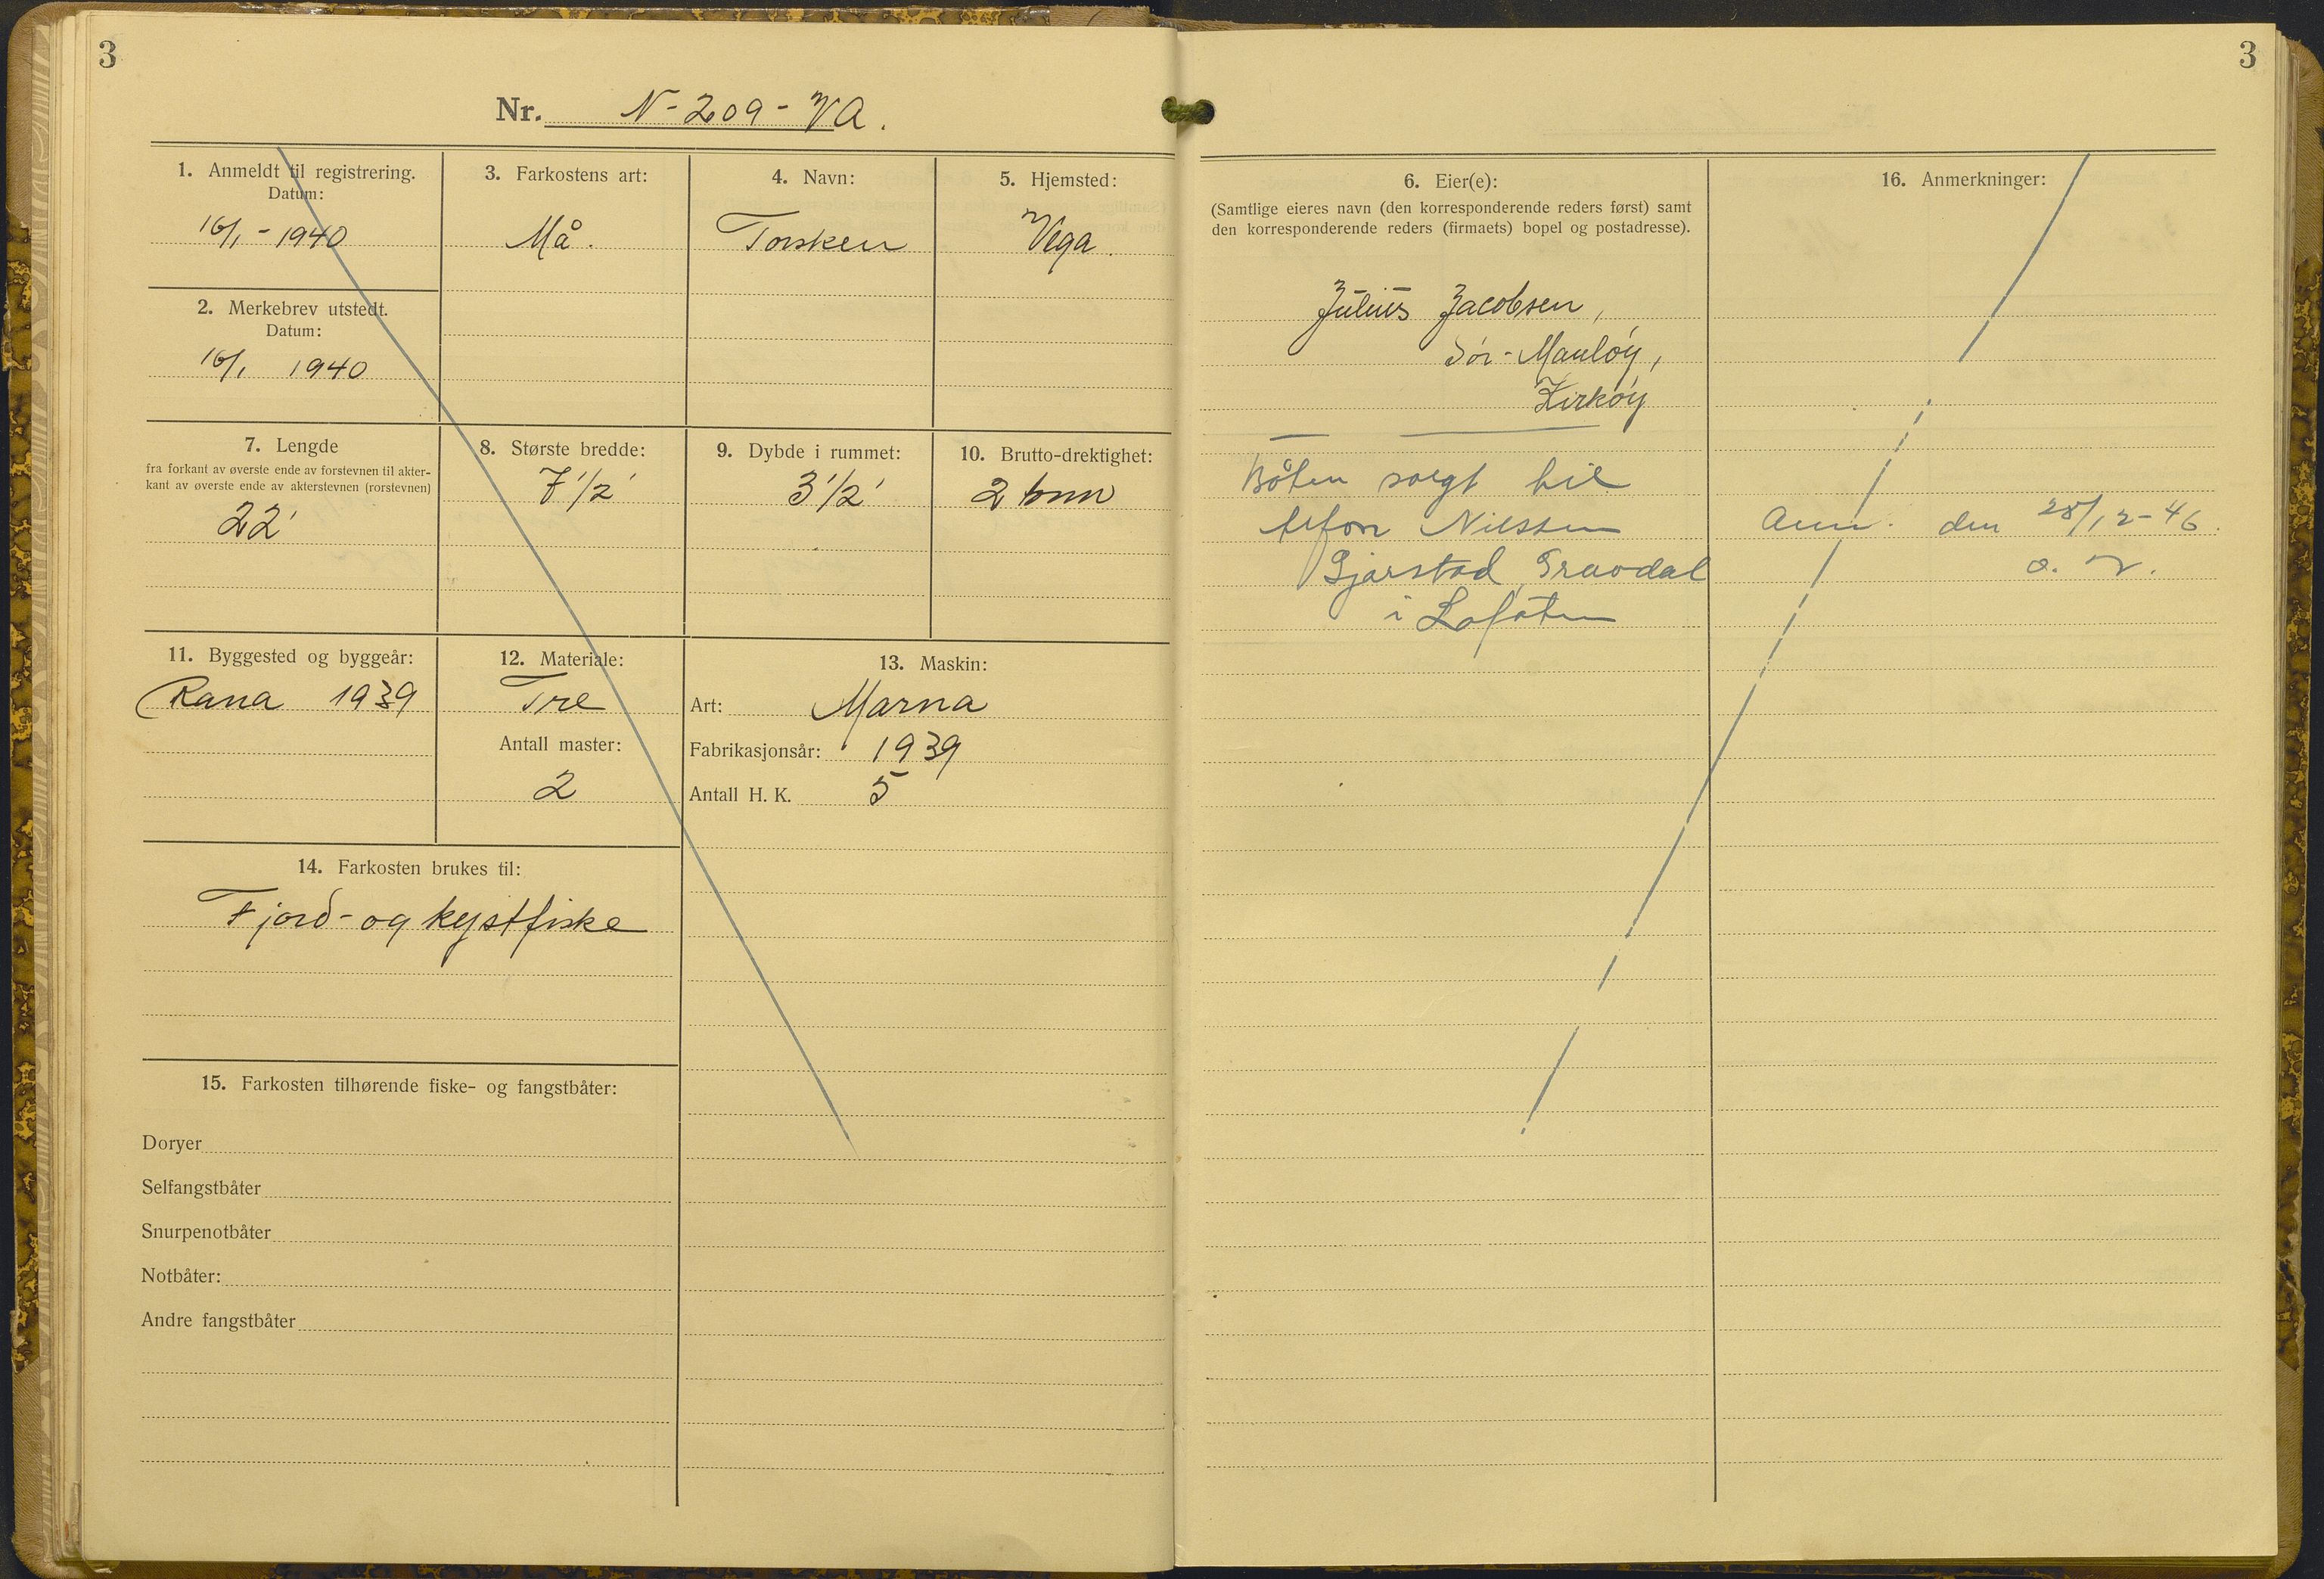 3
Nr. N-209-VA.
1. Anmeldt til registrering.
Datum:
16/1 - 1940
2. Merkebrev utstedt.
Datum:
16/1 1940
3. Farkostens art:
Må.
4. Navn:
Torsken
5. Hjemsted:
Vega.
7. Lengde
fra forkant av øverste ende av forstevnen til akter-
kant av øverste ende av akterstevnen (rorstevnen)
22'
8. Største bredde:
7'1/2'
9. Dybde i rummet:
3'1/2'
10. Brutto-drektighet:
2 tonn
11. Byggested og byggeår:
Rana 1939
12. Materiale:
Tre
Antall master:
2
13. Maskin:
Art: Marna
Fabrikasjonsår: 1939
Antall H. K. 5
14. Farkosten brukes til:
Fjord- og kystfiske
15. Farkosten tilhørende fiske- og fangstbåter:
Doryer
Selfangstbåter
Snurpenotbåter
Notbåter:
Andre fangstbåter
3
6. Eier(e):
(Samtlige eieres navn (den korresponderende reders først) samt
den korresponderende reders (firmaets) bopel og postadresse).
Julius Jacobsen,
Sør-Mauløy,
Kirkøy
Båten solgt til
Nilssen
Gjerstad, Gravdal
i Lofoten
16. Anmerkninger:
Ann. den 28/12-46.